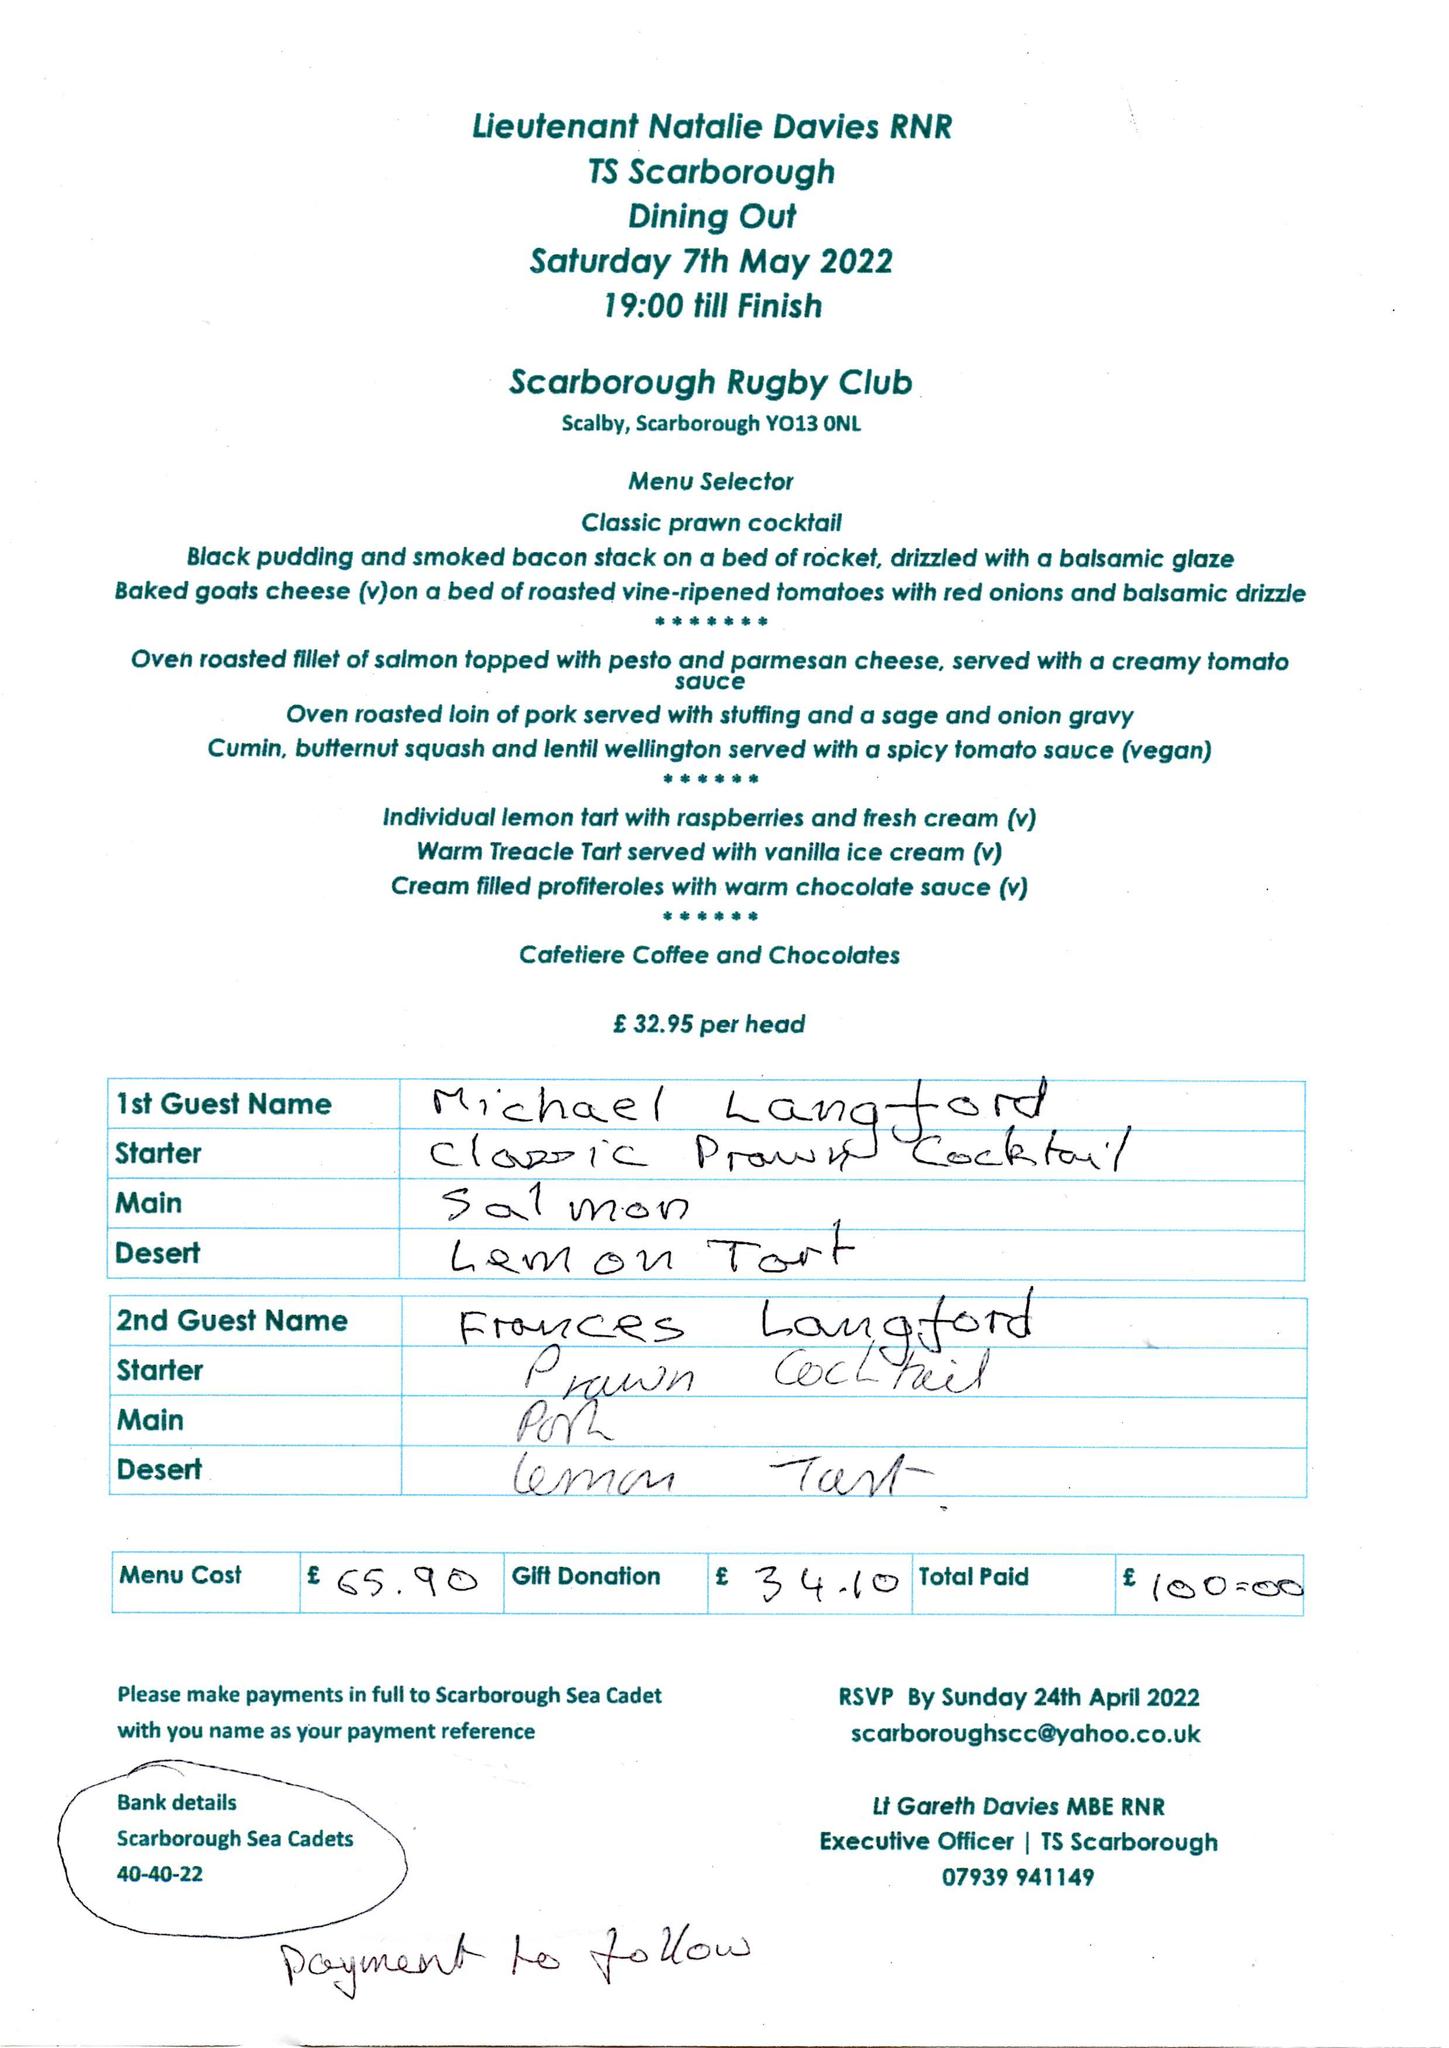 Lieutenant Natalie Davies RNR
TS Scarborough
Dining Out
Saturday 7th May 2022
19:00 till Finish
Scarborough Rugby Club
Scalby, Scarborough YO13 0NL
Menu Selector
Classic prawn cocktail
Black pudding and smoked bacon stack on a bed of rocket, drizzled with a balsamic glaze
Baked goats cheese (v)on a bed of roasted vine-ripened tomatoes with red onions and balsamic drizzle
*******
Oven roasted fillet of salmon topped with pesto and parmesan cheese, served with a creamy tomato
sauce
Oven roasted loin of pork served with stuffing and a sage and onion gravy
Cumin, butternut squash and lentil wellington served with a spicy tomato sauce (vegan)
******
Individual lemon tart with raspberries and fresh cream (v)
Warm Treacle Tart served with vanilla ice cream (v)
Cream filled profiteroles with warm chocolate sauce (v)
******
Cafetiere Coffee and Chocolates
£ 32.95 per head
1st Guest Name Michael Langford
Starter Classic Prawn Cocktail
Main Salmon
Desert Lemon Tart
2nd Guest Name Frances Langford
Starter Prawn Cocktail
Main Pork
Desert Lemon Tart.
Menu Cost £ 65.90 Gift Donation £ 34.10 Total Paid £ 100=00
Please make payments in full to Scarborough Sea Cadet
with you name as your payment reference
RSVP By Sunday 24th April 2022
scarboroughscc@yahoo.co.uk
Bank details
Scarborough Sea Cadets
40-40-22
Lt Gareth Davies MBE RNR
Executive Officer | TS Scarborough
07939 941149
Payment to follow